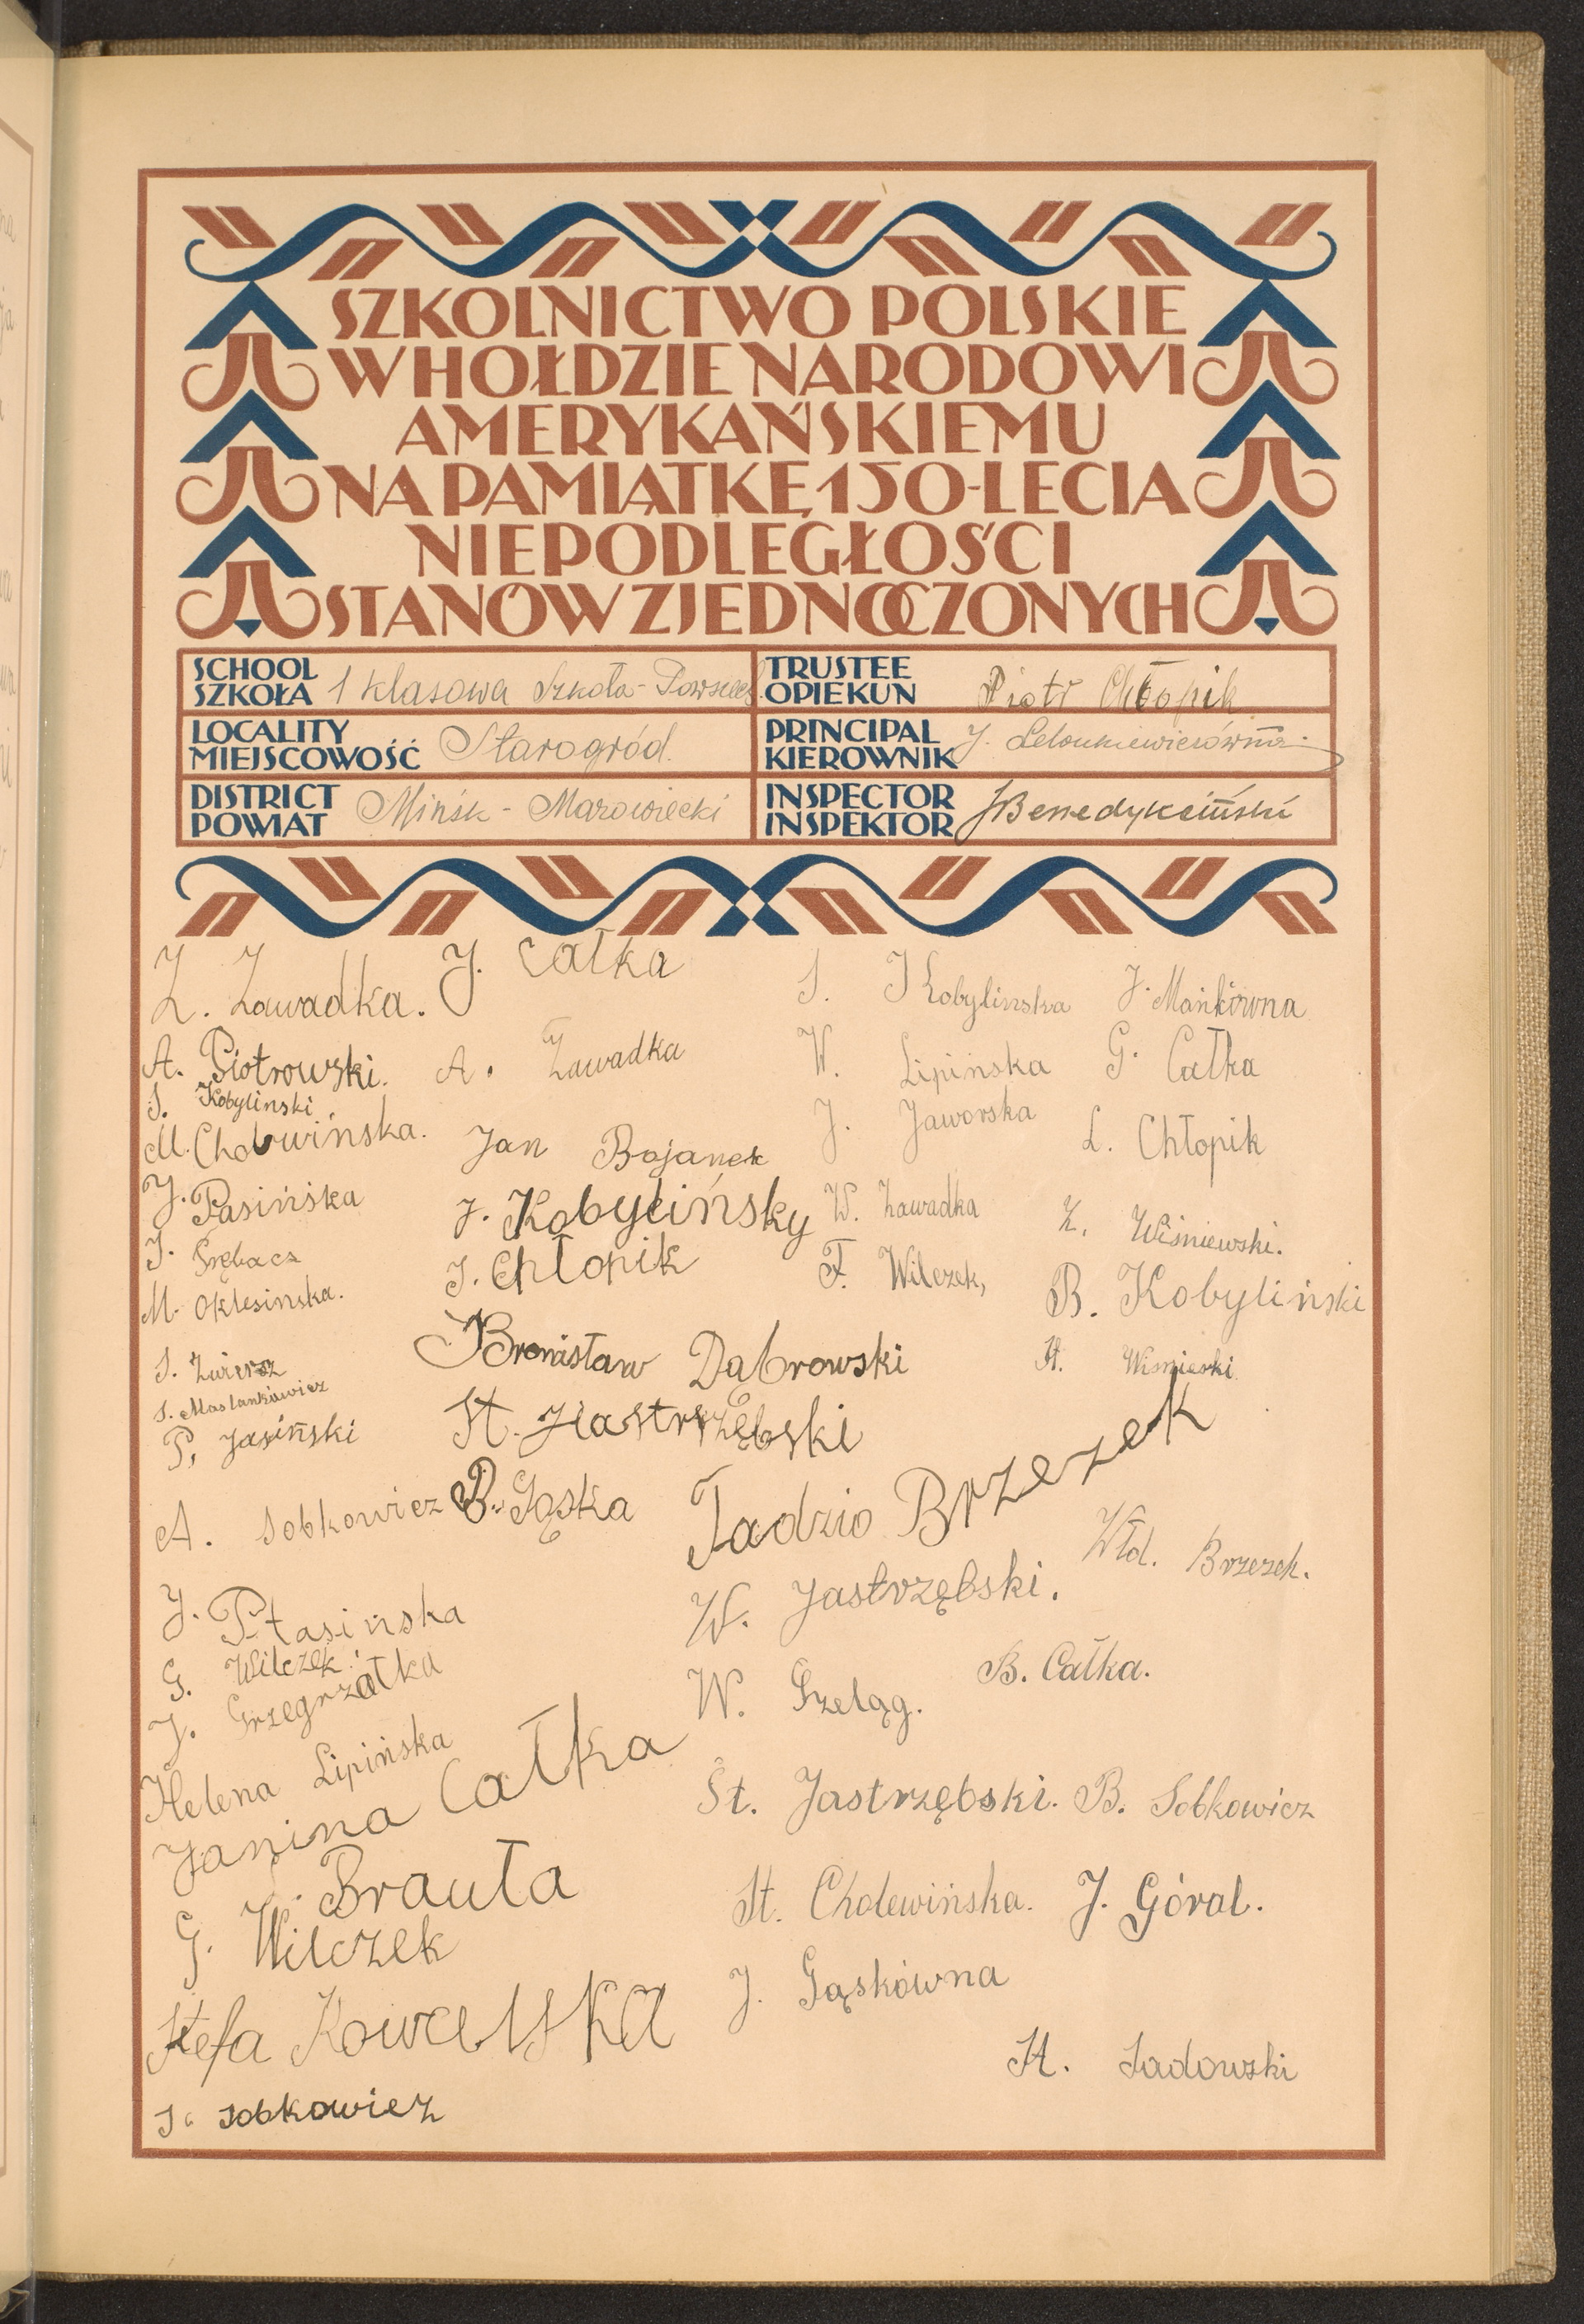 SZKOLNICTWO POLSKIE
W HOŁDZIE NARODOWI
AMERYKAŃSKIEMU
NA PAMIĄTKĘ 150-LECIA
NIEPODLEGŁOŚCI
STANÓW ZJEDNOCZONYCH
SCHOOL
SZKOŁA 1 klasowa Szkoła-
TRUSTEE
OPIEKUN Piotr Chłopik
LOCALITY
MIEJSCOWOŚĆ Starogród.
PRINCIPAL
KIEROWNIK J.
DISTRICT
POWIAT Mińsk - Mazowiecki
INSPECTOR
INSPEKTOR
Z. Zawadka.
A. Piotrowski.
S. Kobyliński
M.
J.
J.
M. Oklesinska.
S.
S. Maslankiewicz
P. Jasiński
A. Sobkowicz
J. Ptasińska
G. Wilczek.
J. Grzegrzałka
Helena Lipińska
Janina Całka
Brauła
G. Wilczek
Stefa
S. Sobkowicz
J. Całka
A. Zawadka
Jan Bojanek
J. Kobylińsky
J. Chłopik
Bronisław Dąbrowski
St. Jiastrzębski
B. Gąska
S. Kobylinska
W. Lipińska
J. Jaworska
W. Zawadka
F. Wilczek,
Tadzio Brzezek
W. Jastrzębski.
W. Szeląg.
St. Jastrzębski.
St. Cholewińska.
J. Gąskówna
J. Mańkówna
G. Całka
L. Chłopik
Z. Wiśniewski.
B. Kobyliński
St.
Wład. Brzezek.
B. Całka.
B. Sobkowicz
J. Góral.
St. Sadowski